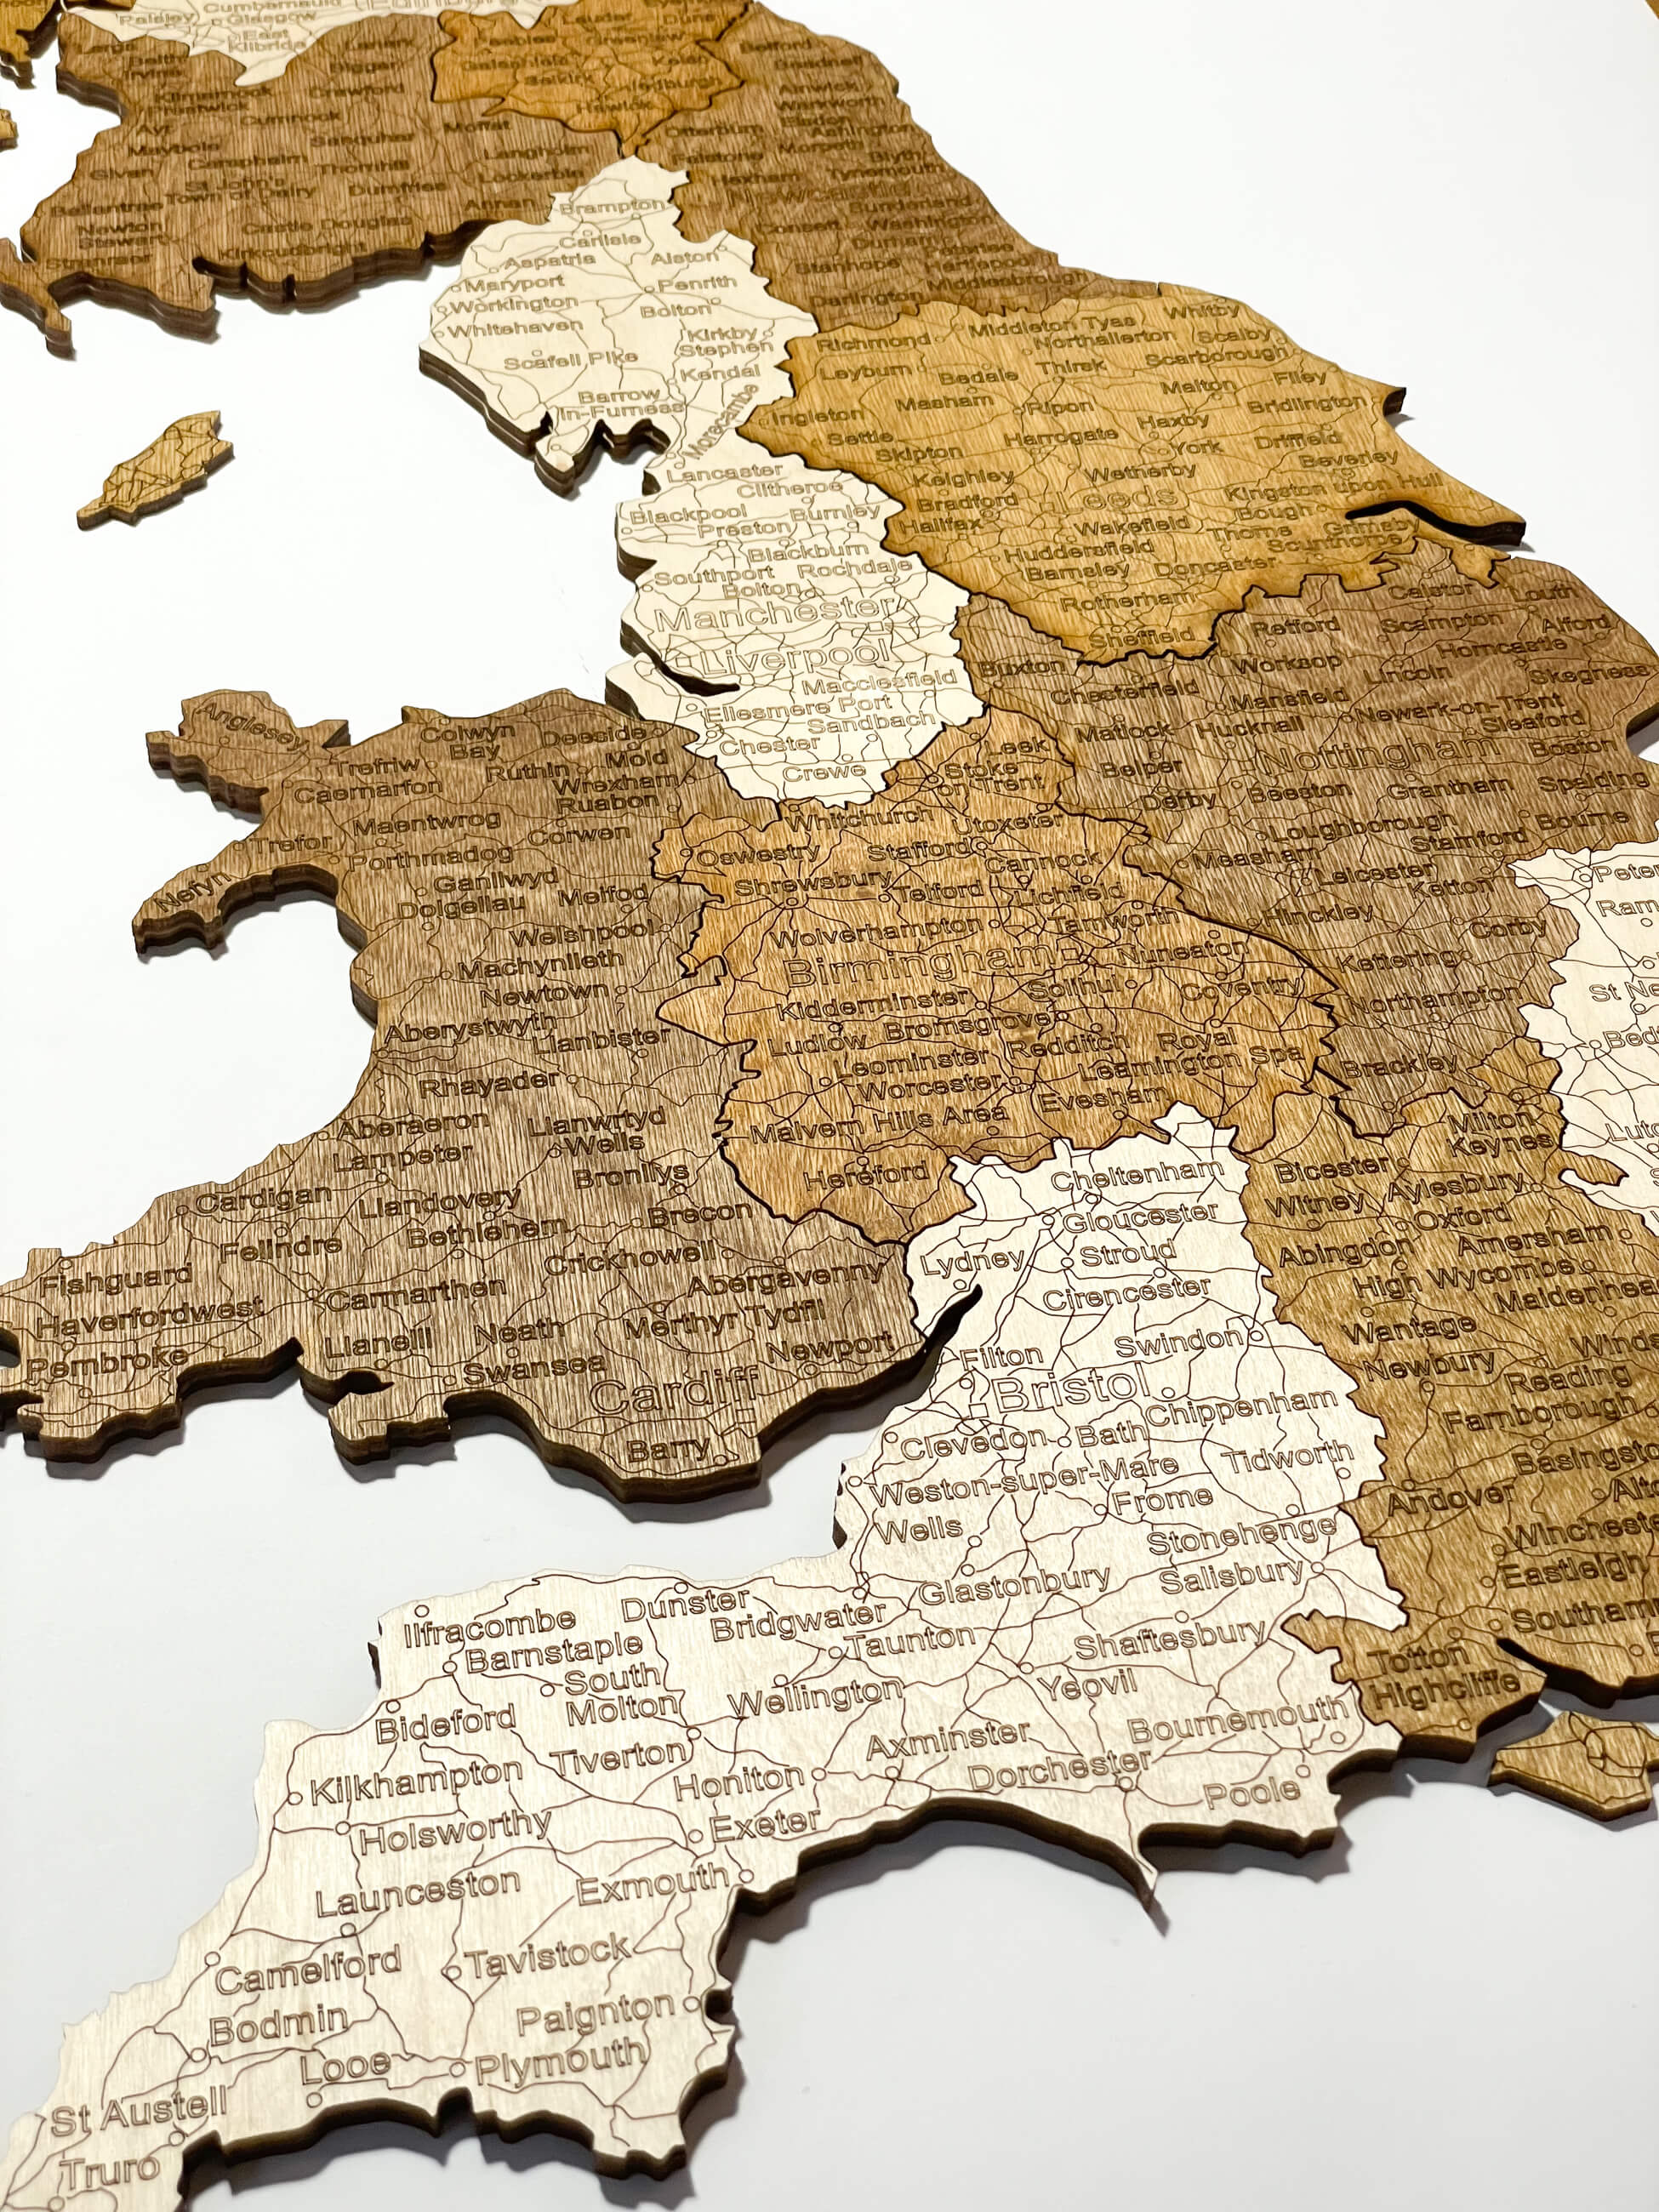 Cumbernauld
Paisley Glasgow
East
Kilbride
Lauder Duns
Peebles Greenlaw
Galashiels Kelso
Selkirk Jedburgh
Hawick
Belford
Beadnell
Alnwick
Warkworth
Ashington
Otterburn Morpeth
Falstone Blyth
Hexham Tynemouth
Sunderland
Consett Washington
Durham Peterlee
Stanhope Hartlepool
Middlesbrough
Darlington
Largs
Beith
Lanark
Biggar
Kilmarnock Crawford
Prestwick
Cumnock
Ayr Sanquhar Moffat
Maybole
Carsphairn Langholm
Girvan Thornhill
St John's
Town of Dalry Dumfries Lockerbie
Ballantrae Annan
Newton
Stewart Castle Douglas
Stranraer Kirkcudbright
Brampton
Carlisle
Aspatria Alston
Maryport Penrith
Workington Bolton
Whitehaven Kirkby
Stephen
Scafell Pike Kendal
Barrow
In-Furness
Morecambe
Lancaster
Clitheroe
Blackpool Burnley
Preston
Blackburn
Southport Rochdale
Bolton
Manchester
Liverpool
Macclesfield
Ellesmere Port
Sandbach
Chester
Crewe
Middleton Tyas Whitby
Richmond Northallerton Scalby
Leyburn Bedale Thirsk Scarborough
Masham Malton Filey
Ingleton Ripon Haxby Bridlington
Settle Harrogate York Driffield
Skipton Wetherby Beverley
Keighley
Bradford Leeds Kingston upon Hull
Halifax Wakefield Gough
Thorne Grimsby
Scunthorpe
Huddersfield
Barnsley Doncaster
Rotherham
Sheffield
Caistor Louth
Retford Scampton Alford
Buxton Worksop Horncastle
Chesterfield Lincoln Skegness
Mansfield
Matlock Hucknall Newark-on-Trent
Sleaford
Nottingham Boston
Belper
Derby Beeston Grantham Spalding
Loughborough Bourne
Measham Stamford
Leicester Ketton
Hinckley Corby
Kettering
Northampton
Brackley
Anglesey
Colwyn
Bay
Deeside
Trefriw Ruthin Mold
Caernarfon Wrexham
Ruabon
Maentwrog Corwen
Trefor Porthmadog
Nefyn Ganllwyd
Dolgellau Meifod
Welshpool
Machynlleth
Newtown
Aberystwyth
Llanbister
Rhayader
Aberaeron Llanwrtyd
Wells
Lampeter Bronllys
Cardigan Llandovery Brecon
Felindre Bethlehem
Fishguard Crickhowell
Haverfordwest Carmarthen Abergavenny
Merthyr Tydfil
Pembroke Llanelli Neath Newport
Swansea
Cardiff
Barry
Leek
Stoke
on-Trent
Whitchurch Utoxeter
Oswestry Stafford
Cannock
Shrewsbury Telford Lichfield
Tamworth
Wolverhampton
Birmingham Nuneaton
Kidderminster Solihul Coventry
Ludlow Bromsgrove
Leominster Redditch Royal
Leamington Spa
Worcester
Evesham
Malvern Hills Area
Hereford
Peter
Ram
St Ne
Bed
Lut
Milton
Keynes
Bicester
Witney Aylesbury
Oxford
Abingdon Amersham
High Wycombe
Maidenhea
Wantage
Winds
Newbury Reading
Farnborough
Basingsto
Andover Alto
Wincheste
Eastleigh
Southam
Totton
Highcliffe
Cheltenham
Gloucester
Lydney Stroud
Cirencester
Filton Swindon
Bristol
Clevedon Bath Chippenham
Weston-super-Mare Tidworth
Frome
Wells Stonehenge
Glastonbury Salisbury
Dunster
Ilfracombe Bridgwater
Barnstaple Taunton Shaftesbury
South
Molton Wellington Yeovil
Bideford
Axminster Bournemouth
Kilkhampton Tiverton
Honiton Dorchester
Poole
Holsworthy Exeter
Launceston Exmouth
Camelford Tavistock
Bodmin Paignton
Looe Plymouth
St Austell
Truro